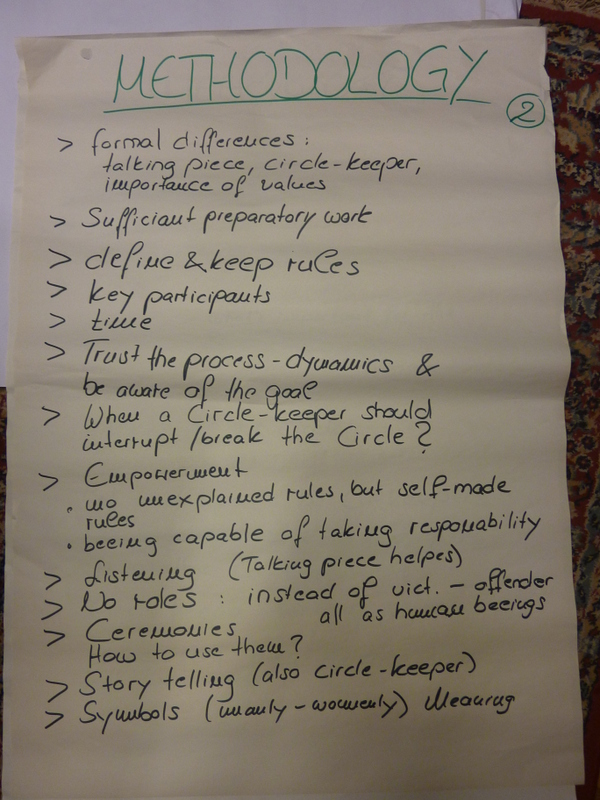 METHODOLOGY
2
> formal differences:
talking piece, circle-keeper,
importance of values
> Sufficiant preparatory work
> define & keep rules
> key participants
> time
> Trust the process-dynamics &
be aware of the goal
> When a Circle-keeper should
interrupt / break the Circle?
> Empowerment
• no unexplained rules, but self-made
rules
• beeing capable of taking responability
> Listening (Talking piece helpes)
> No roles: instead of vict. - offender
all as human beeings
> Ceremonies
How to use them?
> Story telling (also circle-keeper)
> Symbols (manly - womenly) Meaning